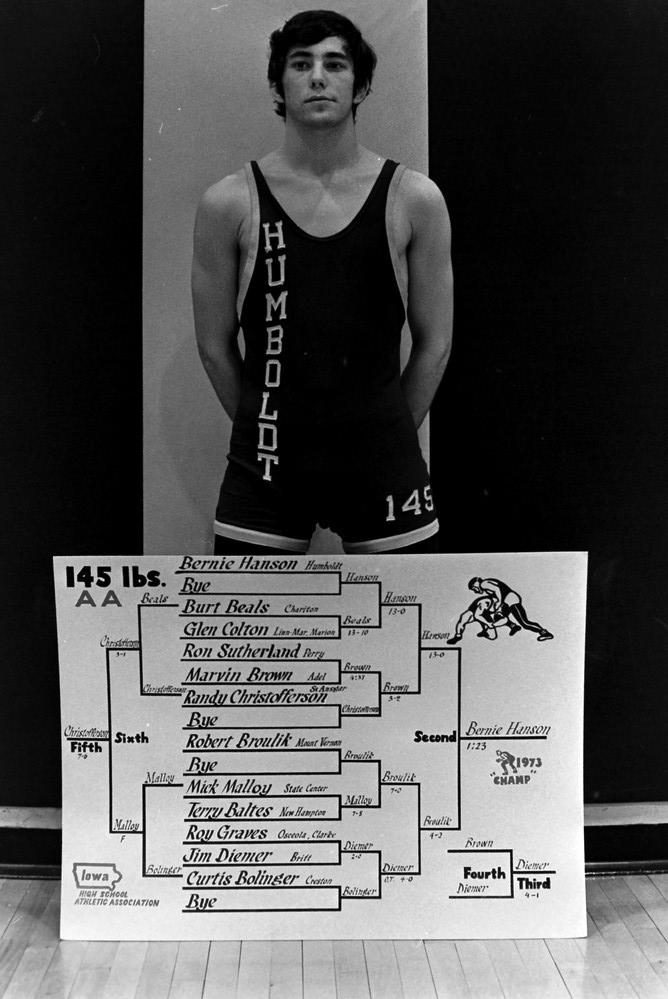 HUMBOLDT
145
145 lbs.
AA
Bernie Hanson Humboldt
Bye
Burt Beals Chariton
Glen Colton Linn-Mar, Marion
Ron Sutherland Perry
Marvin Brown Adel
Randy Christofferson St Ansgar
Bye
Robert Broulik Mount Vernon
Bye
Mick Malloy State Center
Terry Baltes New Hampton
Roy Graves Osceola, Clarke
Jim Diemer Britt
Curtis Bolinger Creston
Bye
Hanson
Beals
13-10
Brown
4:37
Christofferson
Broulik
Malloy
7-5
Diemer
2-0
Bolinger
Hanson
13-0
Brown
3-2
Broulik
7-0
Diemer
O.T. 4-0
Hanson
13-0
Broulik
4-2
Second
Bernie Hanson
1:23
1973
"CHAMP"
Beals
Christofferson
Christofferson
3-1
Malloy
Bolinger
Malloy
F
Christofferson
Fifth
Sixth
Brown
Fourth
Diemer
Diemer
Third
4-1
Iowa
HIGH SCHOOL
ATHLETIC ASSOCIATION